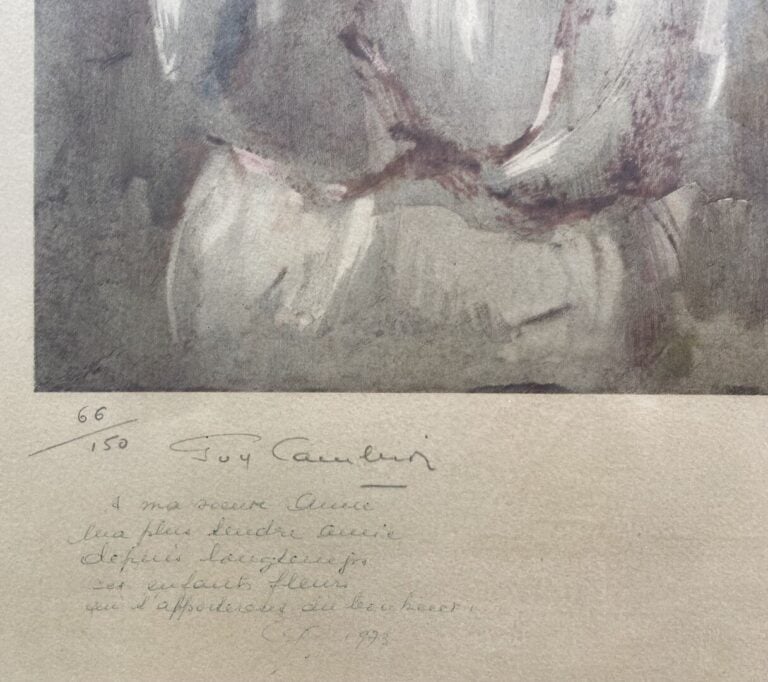 66/150
Guy Cambier
à ma soeur Anne
ma plus tendre amie
depuis longtemps
ses enfants fleurs
qui t'apporteront du bonheur.
1973